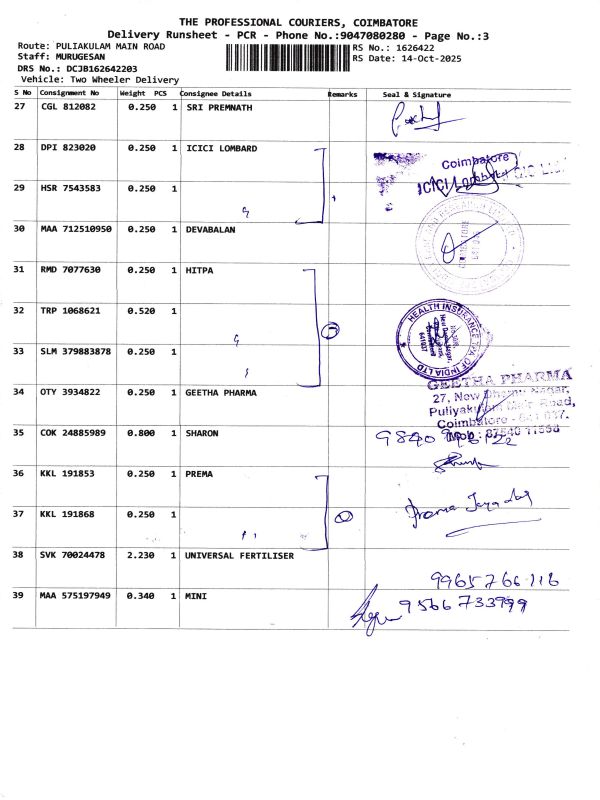 THE PROFESSIONAL COURIERS, COIMBATORE
Delivery Runsheet - PCR - Phone No.:9047080280 - Page No.:3
Route: PULIAKULAM MAIN ROAD RS No.: 1626422
Staff: MURUGESAN RS Date: 14-Oct-2025
DRS No.: DCJB162642203
Vehicle: Two Wheeler Delivery
S No Consignment No Weight PCS Consignee Details Remarks Seal & Signature
27 CGL 812082 0.250 1 SRI PREMNATH
28 DPI 823020 0.250 1 ICICI LOMBARD
Coimbatore
ICICI Lombard
29 HSR 7543583 0.250 1
30 MAA 712510950 0.250 1 DEVABALAN
31 RMD 7077630 0.250 1 HITPA
32 TRP 1068621 0.520 1
HEALTH INSURANCE TPA OF INDIA LTD
33 SLM 379883878 0.250 1
34 OTY 3934822 0.250 1 GEETHA PHARMA
GEETHA PHARMA
27, New Nagar,
Puliyakulam Main Road,
Coimbatore - 641 017.
35 COK 24885989 0.800 1 SHARON
36 KKL 191853 0.250 1 PREMA
37 KKL 191868 0.250 1
Prema
38 SVK 70024478 2.230 1 UNIVERSAL FERTILISER
9965766116
39 MAA 575197949 0.340 1 MINI
9566733999